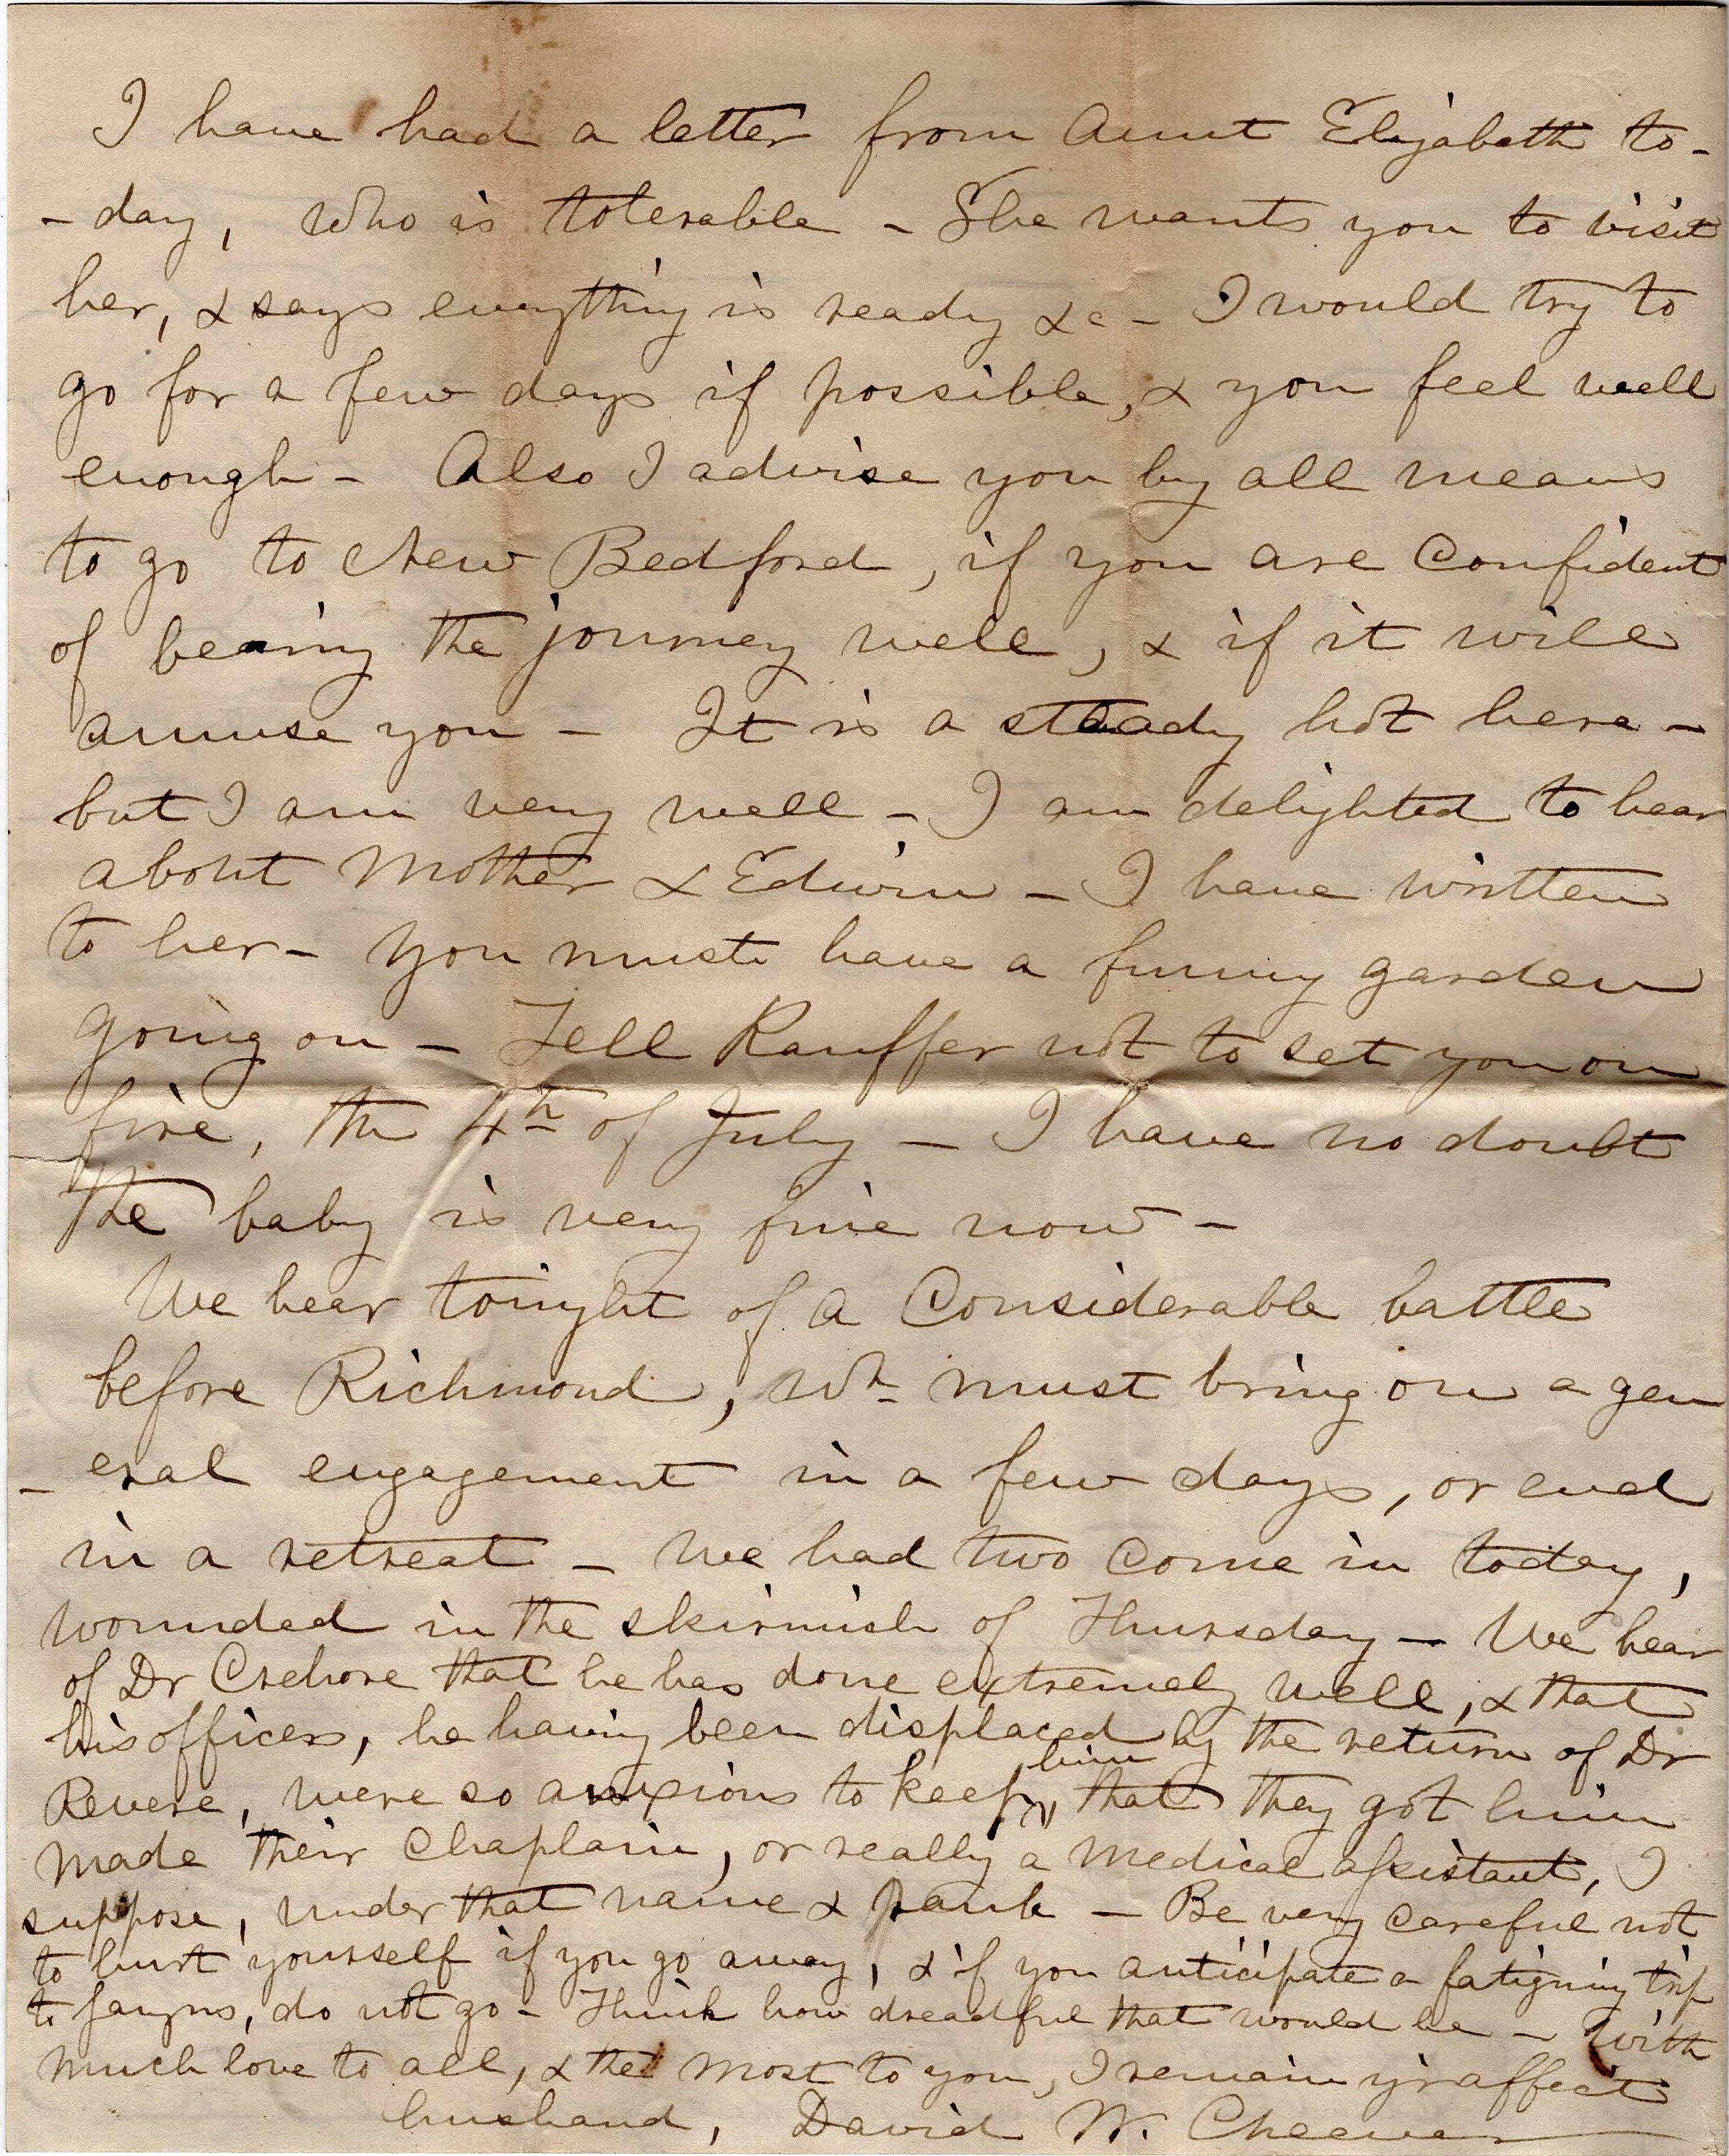 I have had a letter from Aunt Elizabeth to-
- day, who is tolerable - She wants you to visit
her, & says everything is ready &c - I would try to
go for a few days if possible, & you feel well
enough - Also I advise you by all means
to go to New Bedford, if you are confident
of bearing the journey well, & if it will
amuse you - It is a steady hot here -
but I am very well - I am delighted to hear
about Mother & Edwin - I have written
to her - You must have a funny garden
going on - Tell Kauffer not to set you on
fire, the 4th of July - I have no doubt
the baby is very fine now -
We hear tonight of a Considerable battle
before Richmond, wh must bring on a gen
- eral engagement in a few days, or end
in a retreat - We had two come in today,
wounded in the skirmish of Thursday - We hear
of Dr Crehore that he has done extremely well, & that
his officers, he having been displaced by the return of Dr
Revere, were so anxious to keep him, that they got him
made their Chaplain, or really a Medical assistant, I
suppose, under that name & rank - Be very careful not
to hurt yourself if you go away, & if you anticipate a fatiguing trip
to do not go - Think how dreadful that would be - With
much love to all, & the most to you, I remain yr affect
husband, David W. Cheever